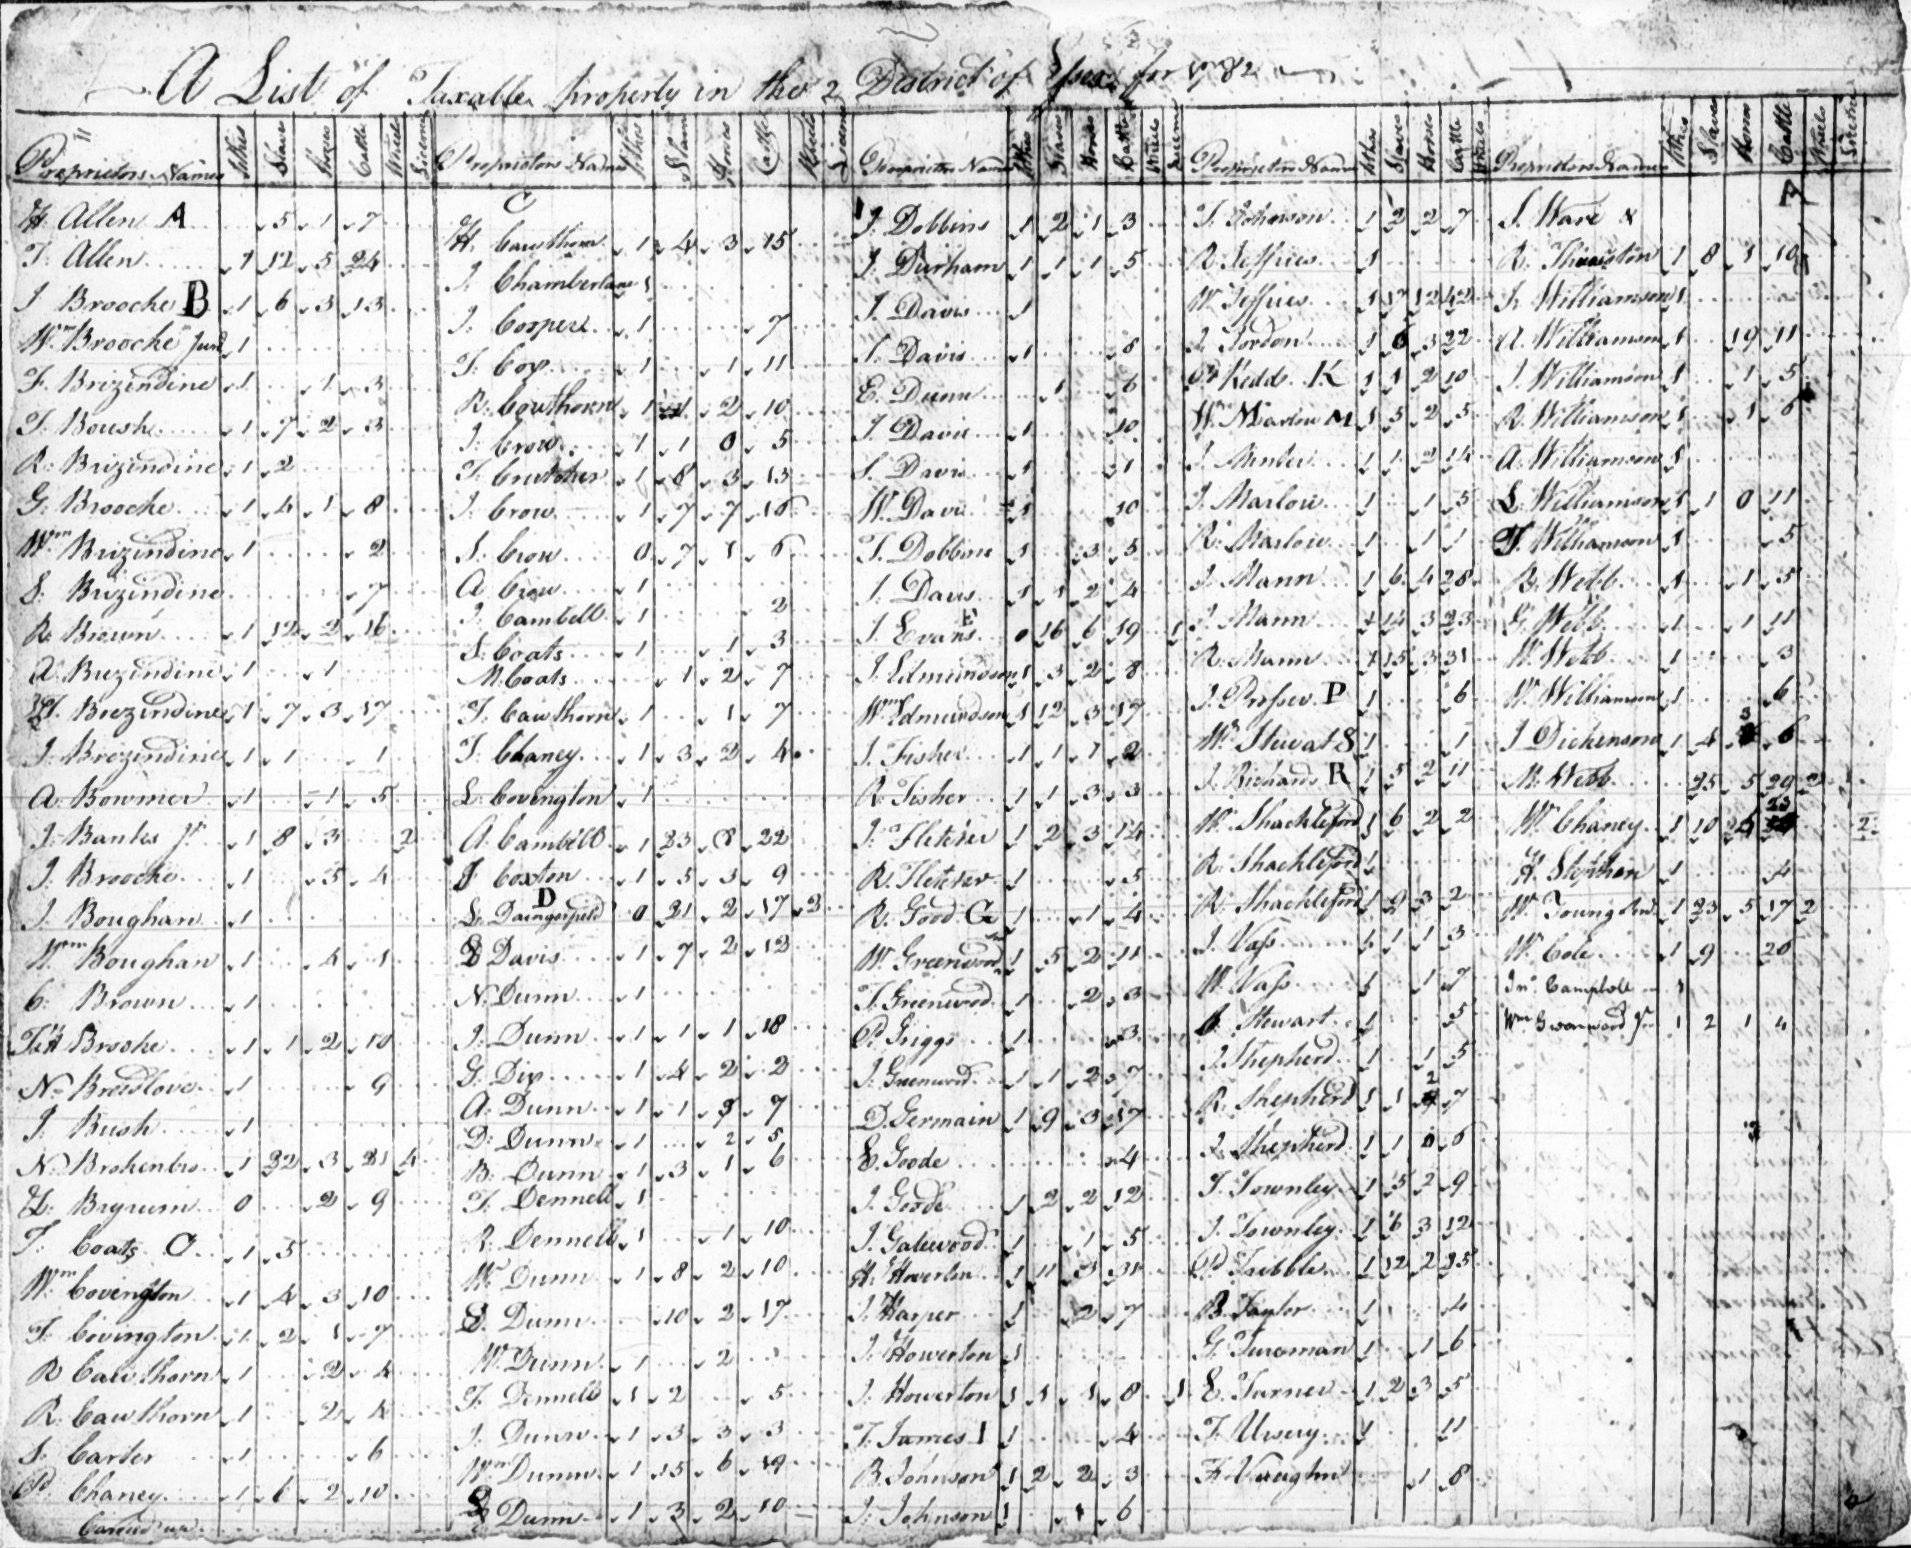 A List of Taxable property in the 2 District of Essex for 1782
Proprietors Names Tithes Slaves Horses Cattle Wheels Licence
H. Allen A 5 1 7
T. Allen 1 12 5 24
J Brooche B 1 6 3 13
Wm Brooche Junr 1
F. Brizindine 1 1 3
T. Boush 1 7 2 3
R. Brizindine 1 2
G. Brooche 1 4 1 8
Wm Brizindine 1 2
S. Brizindine 7
R. Brown 1 12 2 16
A. Brezindine 1 1
H. Brezindine 1 7 3 17
J. Brezindine 1 1 1
A. Bowmer 1 1 5
J. Banks Jr 1 8 3 2
J. Brooche 1 5 4
J. Boughan 1
Wm Boughan 1 4 1
C. Brown 1
Brooke 1 1 2 10
N. Breedlove 1 9
J. Bush 1
N. Brokenbro 1 32 3 21 4
H. Bryrum 0 2 9
T. Coats C 1 5
Wm Covington 1 4 3 10
T. Covington 1 2 1 7
R Cawthorn 1 2 4
R. Cawthorn 1 2 4
S. Carter 1 6
P. Chaney 1 6 2 10
Carried up
Proprietors Names Tithes Slaves Horses Cattle Wheels Licence
C
H. Cawthorn 1 4 3 15
J. Chamberlane 1
J. Cooper 1 7
T. Cox 1 1 11
R. Cawthorn 1 2 10
J. Crow 1 1 0 5
T. Crutcher 1 8 3 13
J. Crow 1 7 7 16
S. Crow 0 7 1 6
A Crow 1
J. Cambell 1 2
S. Coats 1 1 3
M. Coats 1 2 7
T. Cawthorn 1 1 7
T. Chaney 1 3 2 4
L. Covington 1
A. Cambell 1 23 8 22
J Coxton 1 5 3 9
D
L. Daingerfield 0 21 2 17 2
S Davis 1 7 2 12
N. Dunn 1
J. Dunn 1 1 1 18
G. Dix 1 4 2 2
A. Dunn 1 1 3 7
D. Dunn 1 2 5
B. Dunn 1 3 1 6
T. Dennell 1
R. Dennell 1 1 10
W. Dunn 1 8 2 10
S. Dunn 10 2 17
W. Dunn 1 2
T. Dennell 1 2 5
J. Dunn 1 3 3 3
Wm Dunn 1 15 6 19
S Dunn 1 3 2 10
Proprietors Names Tithes Slaves Horses Cattle Wheels Licence
J. Dobbins 1 2 1 3
J. Durham 1 1 1 5
J. Davis 1
J. Davis 1 8
E. Dunn 1 6
J. Davis 1 10
S. Davis 1 1
W. Davis 1 10
T. Dobbins 1 3 5
J. Davis 1 1 2 4
J. Evans E 0 16 6 19 1
J. Edmundson 1 3 2 8
Wm Edmundson 1 12 3 17
J. Fisher 1 1 1 2
R. Fisher 1 1 3 3
J. Fletcher 1 2 3 14
R. Fletcher 1 5
R. Good G 1 1 4
W. Greenwood 1 5 2 11
T. Greenwood 1 2 3
P. Griggs 1 3
J. Greenwood 1 1 2 7
D. Germain 1 9 3 17
E. Goode 4
J. Goode 1 2 2 12
J. Gatewood 1 1 5
H. Howerton 1 11 3 31
J. Harper 1 2 7
J. Howerton 1
J. Howerton 1 1 1 8 1
T. James I 1 4
B. Johnson 1 2 2 3
J. Johnson 1 1 6
Proprietors Names Tithes Slaves Horses Cattle Wheels
T. Johnson 1 2 2 7
R. Jeffries 1
W. Jeffries 1 17 12 42
J. Jordon 1 6 3 22
P. Kedd K 1 1 2 10
W. Marlow M 1 5 2 5
J. 1 1 2 14
J. Marlow 1 1 5
R. Marlow 1 1 1
J. Mann 1 6 4 28
J. Mann 1 14 3 23
R. Mann 1 15 3 31
J. Prosser P 1 6
Wm Stewat S 1 1
J. Richards R 1 5 2 11
W. Shackleford 1 6 2 2
R. Shackleford 1
R. Shackleford 1 9 3 2
J. Vass 1 1 1 3
W. Vass 1 1 7
Stewart 1 5
J. Shepherd 1 1 5
R. Shepherd 1 1 2 7
J. Shepherd 1 1 0 6
T. Townley 1 5 2 9
J. Townley 1 6 3 12
P. Tribble 1 12 2 25
B. Taylor 1 4
G. Tureman 1 1 6
E. Turner 1 2 3 5
T. Usury 1 11
F. Vaughn 1 8
Proprietors Names Tithes Slaves Horses Cattle Wheels Licence
S. Ware
R. Thruston 1 8 1 10
J. Williamson 1
A. Williamson 1 19 11
J. Williamson 1 1 5
R. Williamson 1 1 6
A. Williamson 1
L. Williamson 1 1 0 11
T. Williamson 1 5
B. Webb 1 1 5
G. Webb 1 1 11
W. Webb 1 3
W. Williamson 1 6
J Dickenson 1 4 3 6
M. Webb 25 5 29 2
W. Chaney 1 10 23 2
H. Stephan 1 4
W. Young 1 23 5 17 2
W. Cole 1 9 20
Jno Campbell 1
Wm Greenwood Jr 1 2 1 4